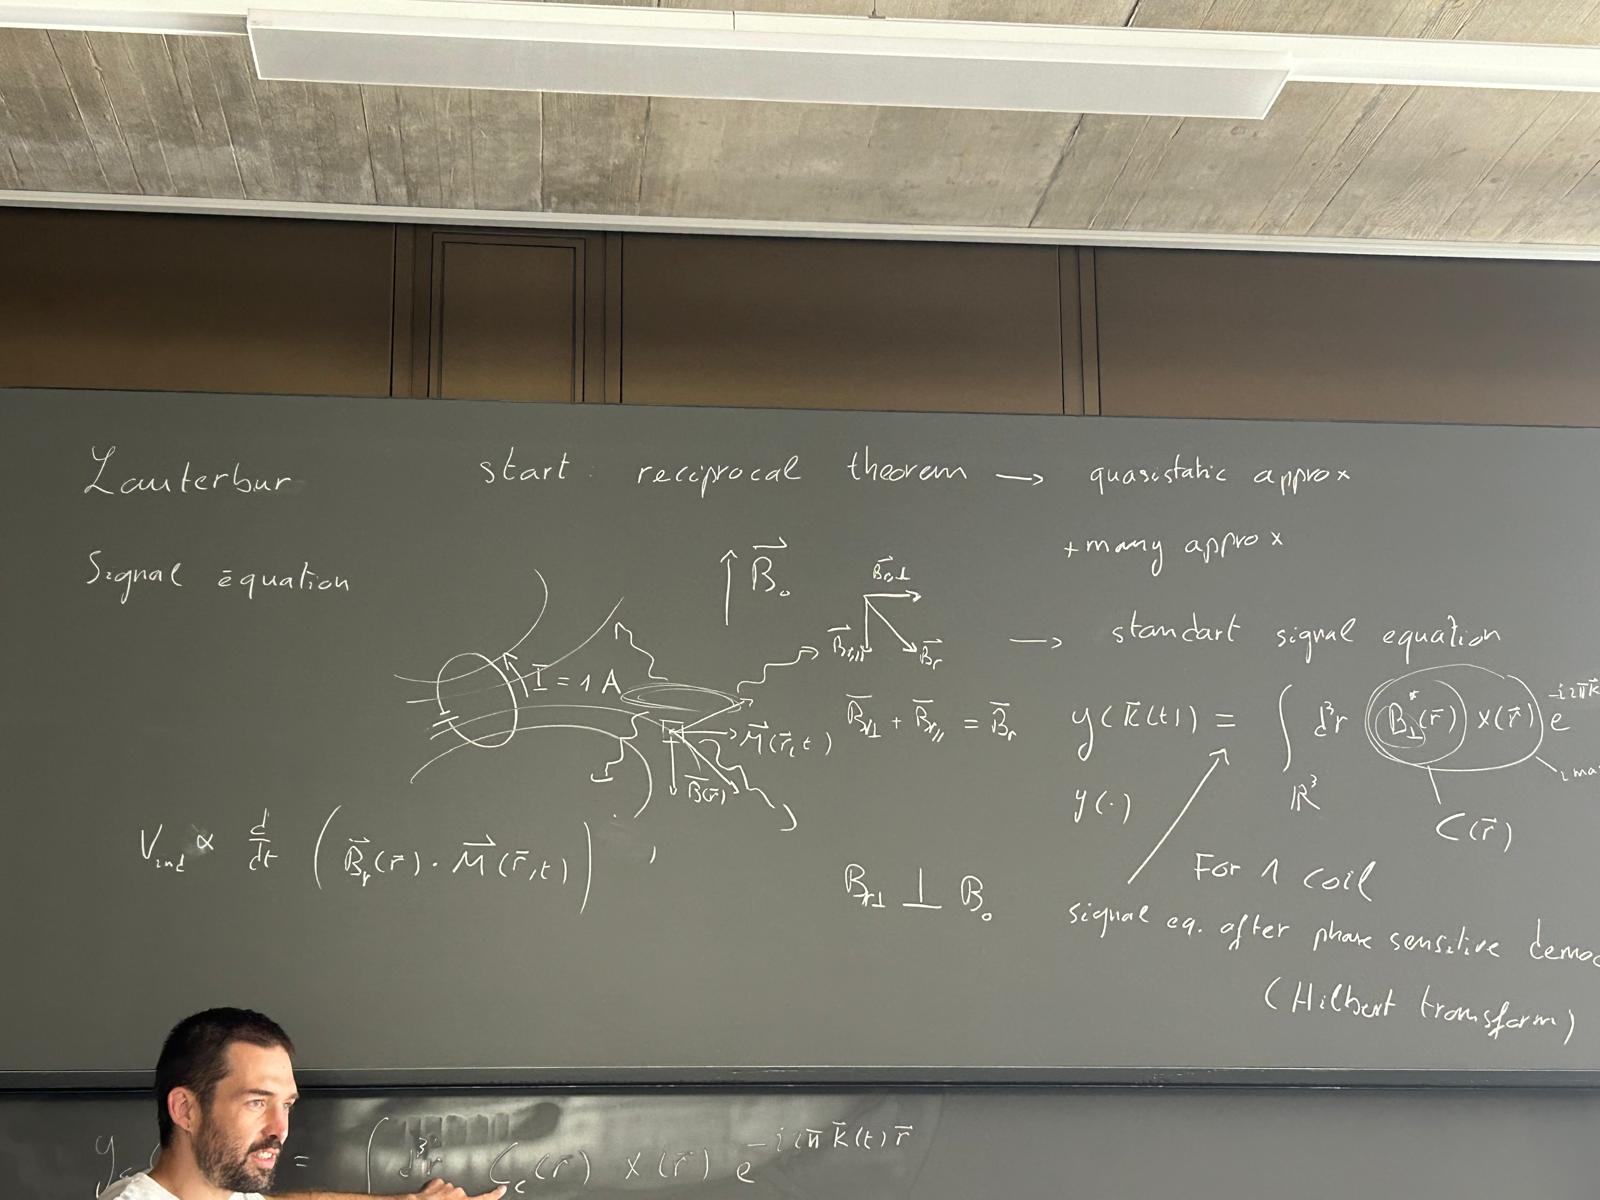 Lauterbur start: reciprocal theorem → quasistatic approx
+ many approx
Signal equation
B⃗₀
B⃗r⊥
B⃗r∥
B⃗r
→ standart signal equation
I⃗ = 1 A
M⃗(r⃗,t)
B⃗(r⃗)
B⃗r⊥ + B⃗r∥ = B⃗r
y(k⃗(t)) = ∫ℝ³ d³r B⊥*(r⃗) x(r⃗) e^-i2πk⃗
y(·)
C(r⃗)
V_ind ∝ d/dt (B⃗r(r⃗) · M⃗(r⃗,t))
Br⊥ ⊥ B₀
For 1 coil
signal eq. after phase sensitive
(Hilbert transform)
= ∫ d³r C_c(r⃗) x(r⃗) e^-i2π k⃗(t) r⃗